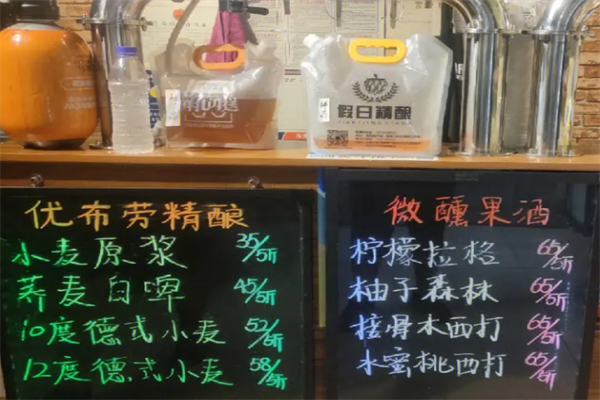 假日精酿
优布劳精酿
小麦原浆 35/5斤
荞麦白啤 45/5斤
10度德式小麦 52/5斤
12度德式小麦 58/5斤
微醺果酒
柠檬拉格 65/5斤
柚子森林 65/5斤
接骨木西打 65/5斤
水蜜桃西打 65/5斤